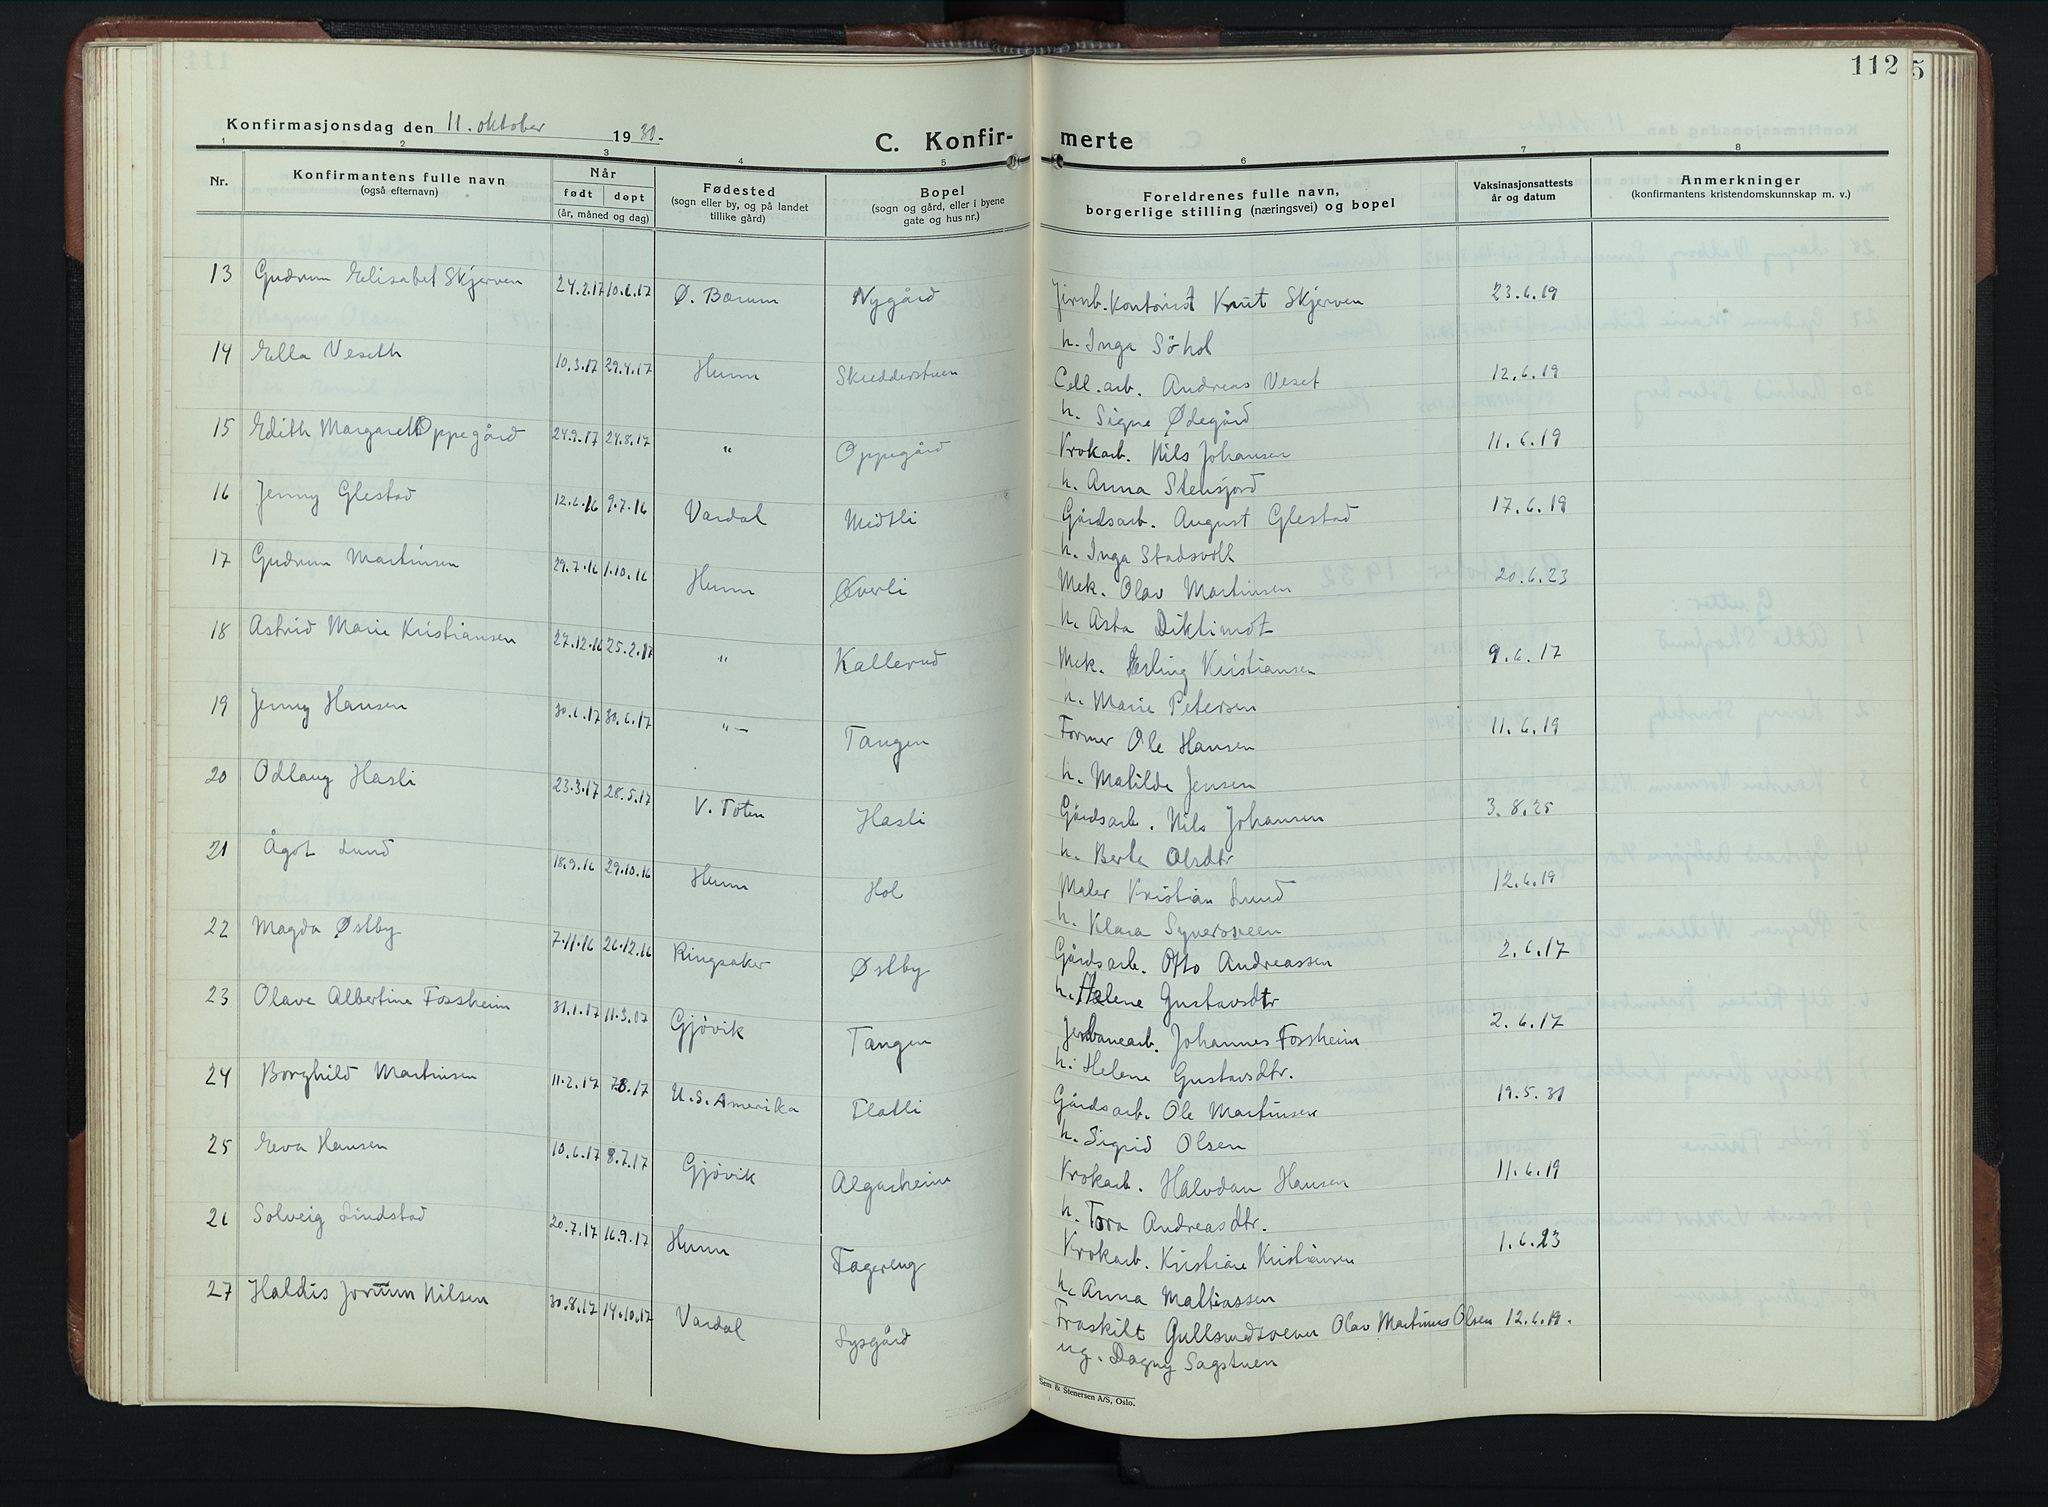 112
Konfirmasjonsdag den 11. oktober 1931.
C. Konfirmerte
1 2 3 4 5 6 7 8
Nr. Konfirmantens fulle navn (også efternavn) Når født døpt (år, måned og dag) Fødested (sogn eller by, og på landet tillike gård) Bopel (sogn og gård, eller i byene gate og hus nr.) Foreldrenes fulle navn, borgerlige stilling (næringsvei) og bopel Vaksinasjonsattests år og datum Anmerkninger (konfirmantens kristendomskunnskap m. v.)
13 Gudrun Elisabet Skjerven 24.2.17 10.6.17 Ø. Bærum Nygård Jernb. kontorist Knut Skjerven 23.6.19
h. Inga Søhol
14 Ella Veseth 10.3.17 29.4.17 Hunn Skredderstuen Cell. arb. Andreas Veset 12.6.19
h. Signe Ødegård
15 Edith Margareth Oppegård 24.9.17 24.8.17 " Oppegård Krokarb. Nils Johansen 11.6.19
h. Anna Stensjord
16 Jenny Glestad 12.6.16 9.7.16 Vardal Midtli Gårdsarb. August Glestad 17.6.19
h. Inga Stadsvoll
17 Gudrun Martinsen 29.7.16 1.10.16 Hunn Øverli Mek. Olav Martinsen 20.6.23
h. Asta
18 Astrid Marie Kristiansen 27.12.16 25.2.17 " Kallerud Mek. Erling Kristiansen 9.6.17
h. Marie Petersen
19 Jenny Hansen 30.6.17 30.6.17 " — Tangen Former Ole Hansen 11.6.19
h. Matilde Jensen
20 Odlaug Hasli 23.3.17 28.5.17 V. Toten Hasli Gårdsarb. Nils Johansen 3.8.25
h. Berte Olsdtr
21 Ågot Lund 18.9.16 29.10.16 Hunn Hol Maler Kristian Lund 12.6.19
h. Klara Syversveen
22 Magda Østby 7.11.16 26.12.16 Ringsaker Østby Gårdsarb. Otto Andreassen 2.6.17
h. Helene Gustavsdtr
23 Olave Albertine Fossheim 31.1.17 11.3.17 Gjøvik Tangen Jernbanearb. Johannes Fossheim 2.6.17
h: Helene Gustavsdtr.
24 Borghild Martinsen 11.2.17 7.8.17 U.S. Amerika Flatli Gårdsarb. Ole Martinsen 19.5.31
h. Sigrid Olsen
25 Eva Hansen 10.6.17 8.7.17 Gjøvik Algarheim Krokarb. Halvdan Hansen 11.6.19
h. Tora Andreasdtr.
26 Solveig Lindstad 20.7.17 16.9.17 Hunn Fagereng Krokarb. Kristian Kristiansen 1.6.23
h. Anna Mathiassen
27 Haldis Jorunn Nilsen 30.8.17 14.10.17 Vardal Sysgård Fraskilt Gullsmedsvenn Olav Martinus Olsen 12.6.19.
ug. Dagny Sagstuen
Sem & Stenersen A/S, Oslo.